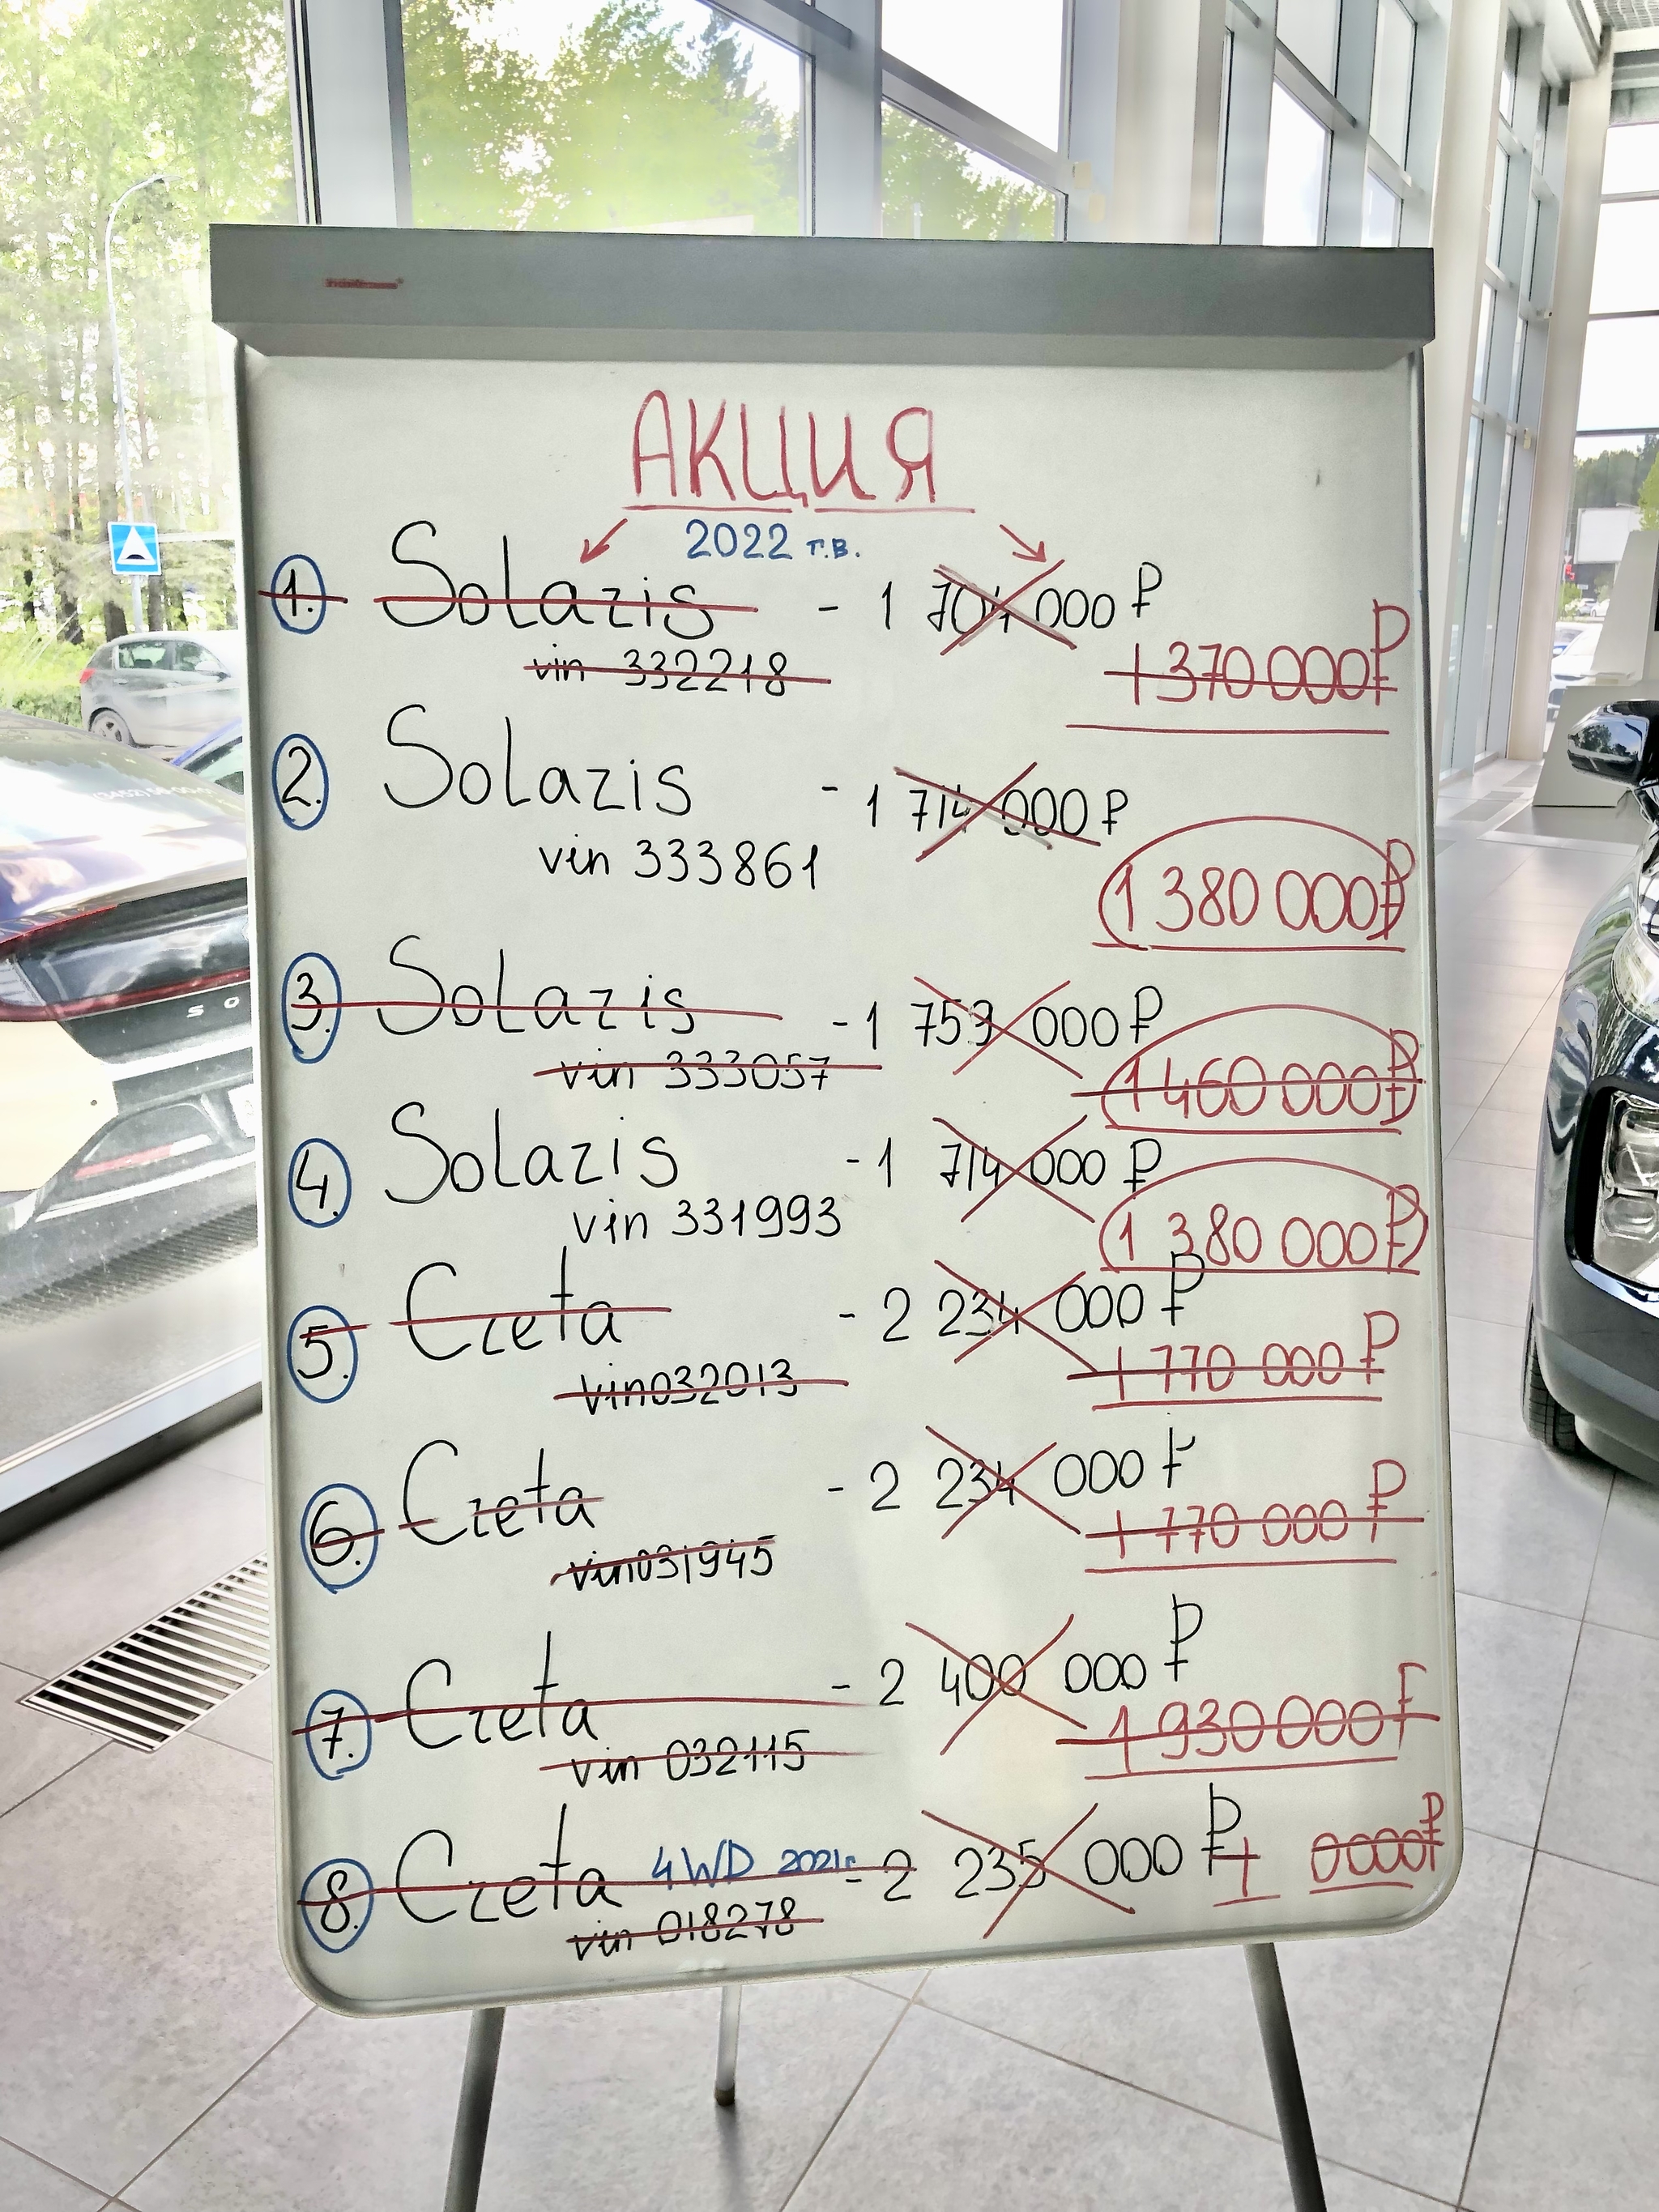 АКЦИЯ
2022 г.в.
1. Solaris - 1 704 000 ₽
vin 332218
1 370 000₽
2. Solaris - 1 714 000 ₽
vin 333861
1 380 000₽
3. Solaris - 1 759 000 ₽
vin 333057
1 460 000₽
4. Solaris - 1 714 000 ₽
vin 331993
1 380 000₽
5. Creta - 2 234 000 ₽
vin032013
1 770 000 ₽
6. Creta - 2 234 000 ₽
vin031945
1 770 000 ₽
7. Creta - 2 400 000 ₽
vin 032115
1 930 000₽
8. Creta 4WD 2021г - 2 235 000 ₽
vin 018278
S O